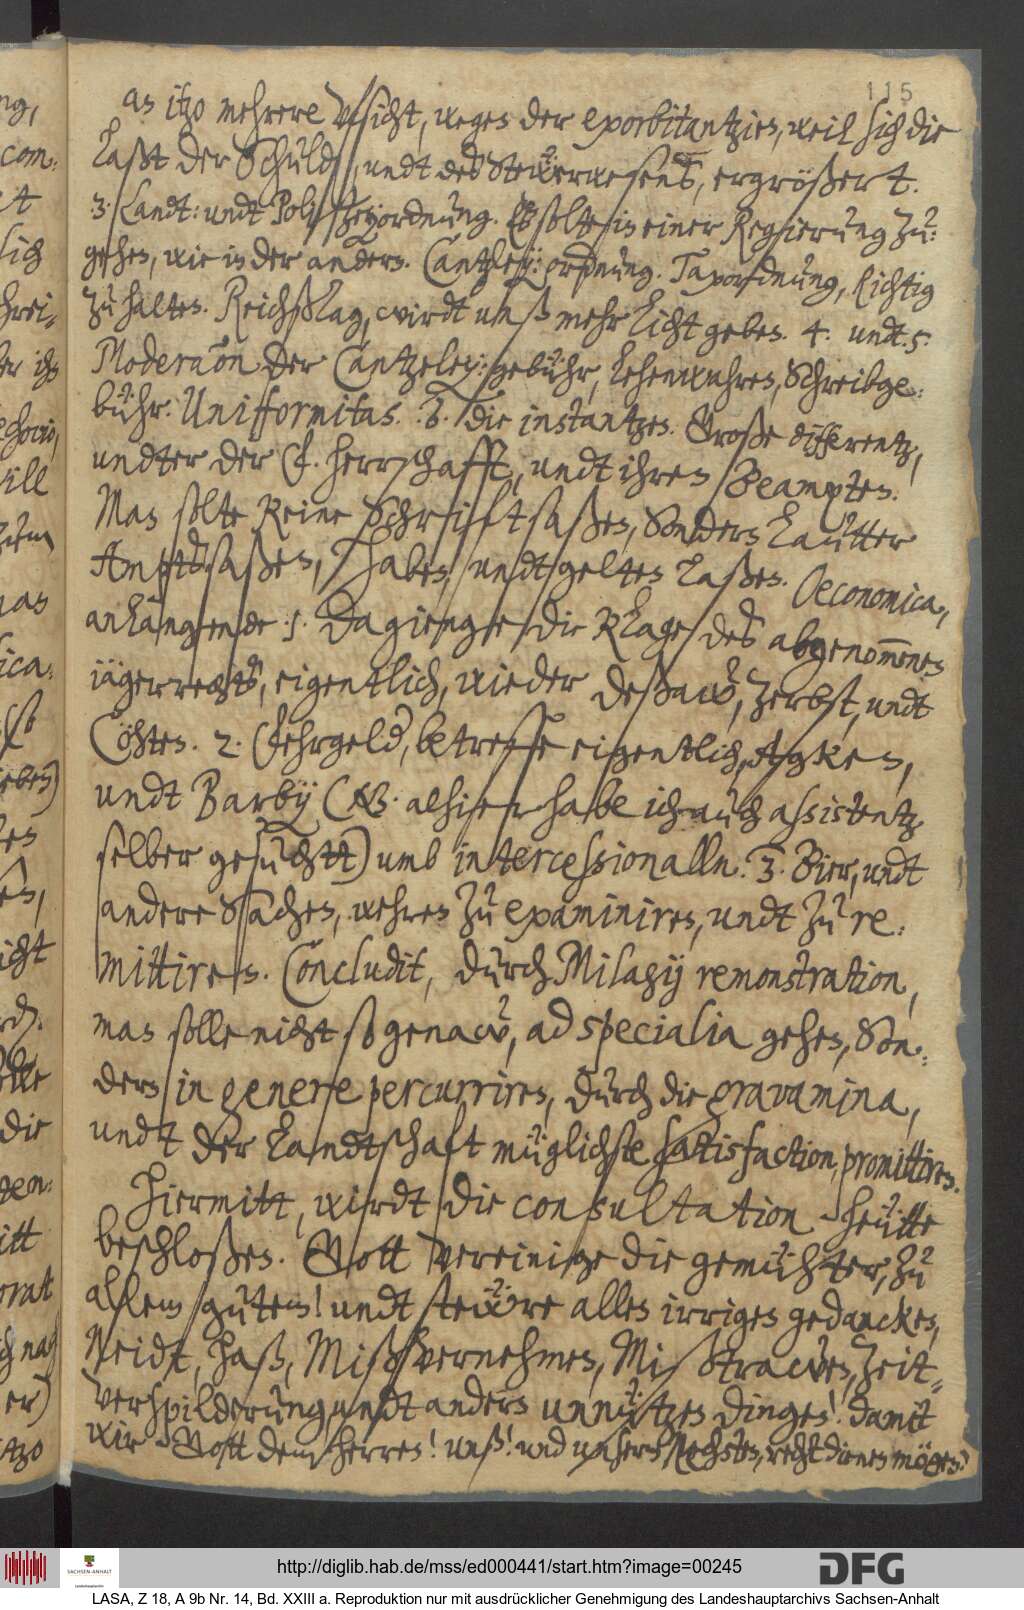 115
an itzo mehrere Vorsicht, wegen der exorbitantzien, weil sich die
Last der Schulden, undt des Steüerwesens, ergrößert.
3. Landt: undt Polizeyordnung. Es solte in einer Regierung zu:
gehen, wie in der andern. Cantzley: ordnung. Taxordnung, Richtig
zu halten. Reichßtag, wirdt unß mehr licht geben. 4. undt. 5.
Moderaõn der Cantzeley: gebühr, Lehenwahren, Schreibge:
bühr: Uniformitas. 6. die instantzen. Große differentz,
undter der herrschafft, undt ihren Beampten.
Man solte keine Schrifftsaßen, Sondern Lautter
Amptssaßen, haben, undt gelten laßen. Oeconomica,
anhängende: 1. Da gienge die Klage des abgenom̅enen
iägerrechts, eigentlich, wieder Deßaw, Zerbst, undt
Cöhten. 2. Fehrgeld, betreffe eigentlich, Agken,
undt Barby (NB. alhier habe ich auch assistentz
selber gesucht) umb intercessionalln. 3. Bier, undt
andere Sachen, wehren zu examiniren, undt zu re:
mittiren. Concludit, durch Milagij remonstration,
man solle nicht so genaw, ad specialia gehen, Son:
dern in genere percurriren, durch die gravamina,
undt der Landtschaft müglichste sattisfaction, promittiren.
Hiermitt, wirdt die consultation heütte
beschloßen. Gott vereinige die gemühter, zu
allem gutem! undt stewre allen irrigen gedancken,
Neidt, Haß, Mißvernehmen, Mißtrawen, Zeit-
verspilderung, undt andern unnützen dingen! damit
wir Gott dem Herren! unß! und unserm Nechsten, recht dienen mögen.
ng,
com:
it
lich
hrei-
er ich
ill
zum
man
ica:
eben)
en,
icht
die
itt
er)
itzo
http://diglib.hab.de/mss/ed000441/start.htm?image=00245
SACHSEN-ANHALT
DFG
LASA, Z 18, A 9b Nr. 14, Bd. XXIII a. Reproduktion nur mit ausdrücklicher Genehmigung des Landeshauptarchivs Sachsen-Anhalt